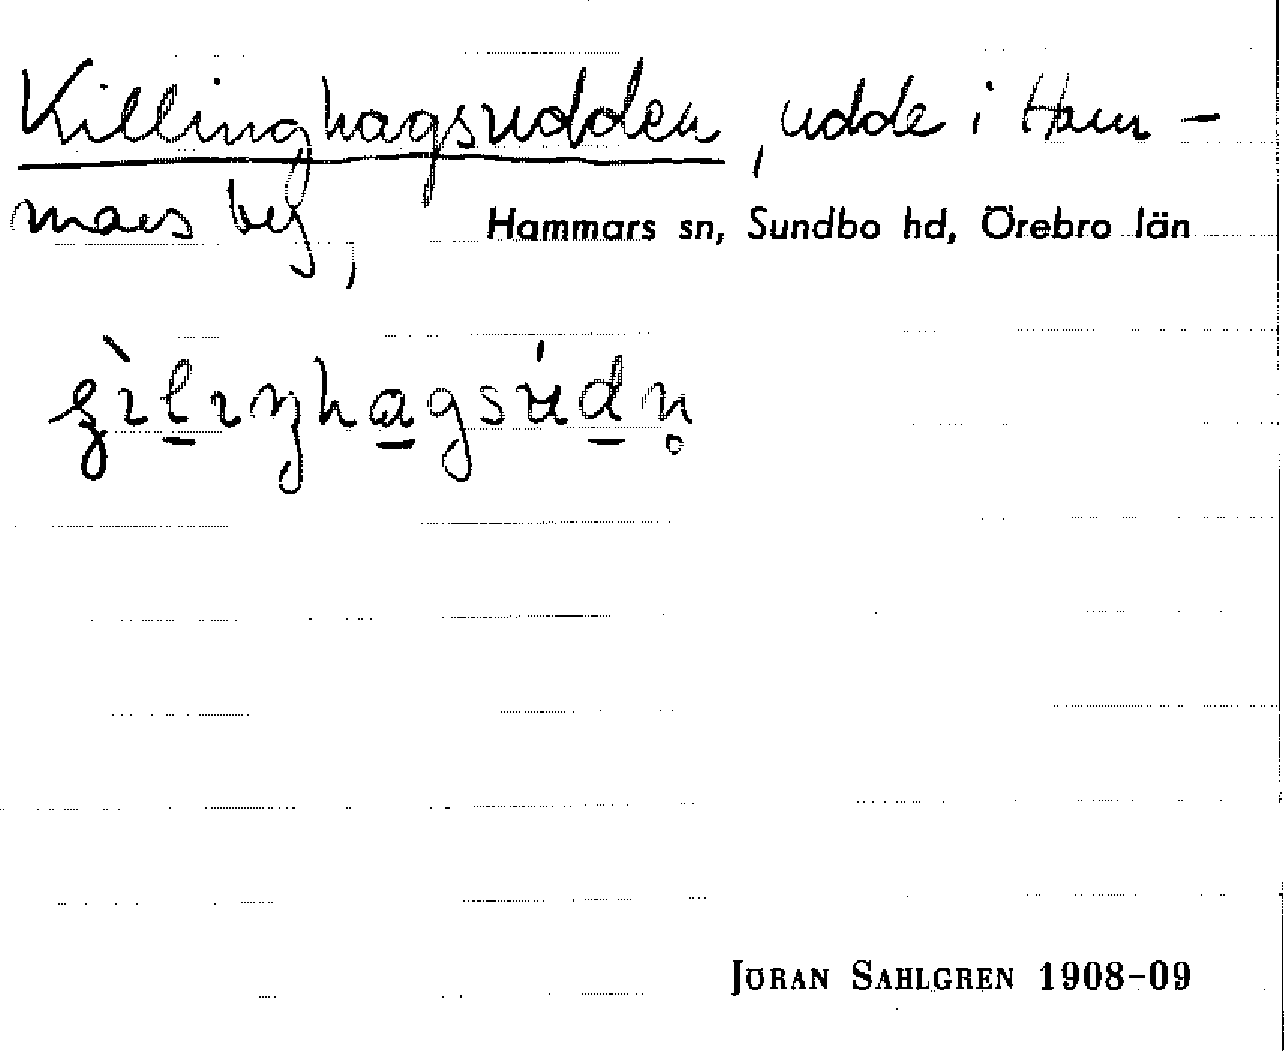 Killinghagsudden, udde i Ham-
mars by,
Hammars sn, Sundbo hd, Örebro län
JÖRAN SAHLGREN 1908-09